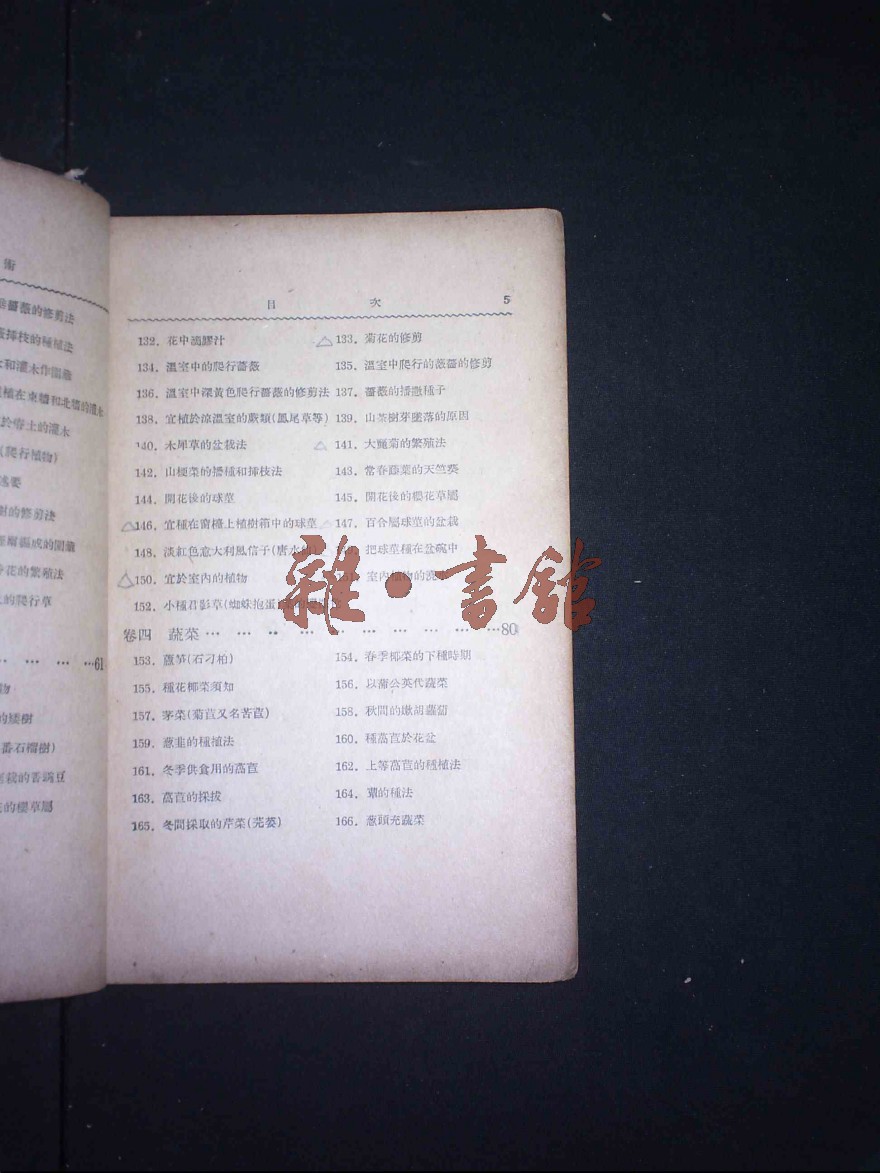 術
薔薇的修剪法
插枝的種植法
木和灌木作閒籬
植在東牆和北牆的灌木
於帶土的灌木
(爬行植物)
述要
樹的修剪法
籬編成的閒籬
芬花的繁殖法
的爬行草
… … … …61
物
的矮樹
番石榴樹)
栽的香豌豆
的櫻草屬
目 次 5
132. 花中滴膠汁 △ 133. 菊花的修剪
134. 溫室中的爬行薔薇 135. 溫室中爬行的薔薇的修剪
136. 溫室中深黃色爬行薔薇的修剪法 137. 薔薇的播撒種子
138. 宜植於涼溫室的蕨類(鳳尾草等) 139. 山茶樹芽墜落的原因
140. 木犀草的盆栽法 △ 141. 大麗菊的繁殖法
142. 山梗菜的播種和插枝法 143. 常春藤葉的天竺葵
144. 開花後的球莖 145. 開花後的櫻花草屬
△146. 宜種在窗檯上植樹箱中的球莖 147. 百合屬球莖的盆栽
148. 淡紅色意大利風信子(唐水仙) 把球莖種在盆碗中
△150. 宜於室內的植物 室內植物的
152. 小種君影草(蜘蛛抱蛋)
卷四 蔬菜… … … … … … … … … …80
153. 蘆笋(石刁柏) 154. 春季椰菜的下種時期
155. 種花椰菜須知 156. 以蒲公英代蔬菜
157. 茅菜(菊苣又名苦苣) 158. 秋間的嫩胡蘿蔔
159. 葱韭的種植法 160. 種萵苣於花盆
161. 冬季供食用的萵苣 162. 上等萵苣的種植法
163. 萵苣的採拔 164. 蕈的種法
165. 冬間採取的芹菜(芫荽) 166. 葱頭充蔬菜
雜·書館